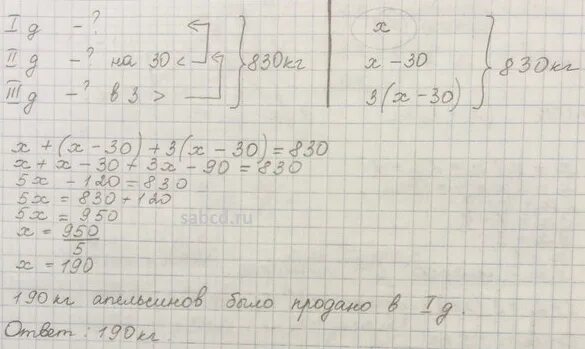 I д - ?
II д - ? на 30 <
III д - ? в 3 >
830 кг
x
x - 30
3(x - 30)
830 кг
x + (x - 30) + 3(x - 30) = 830
x + x - 30 + 3x - 90 = 830
5x - 120 = 830
5x = 830 + 120
5x = 950
sabcd.ru
x = 950/5
x = 190
190 кг апельсинов было продано в I д.
Ответ: 190 кг